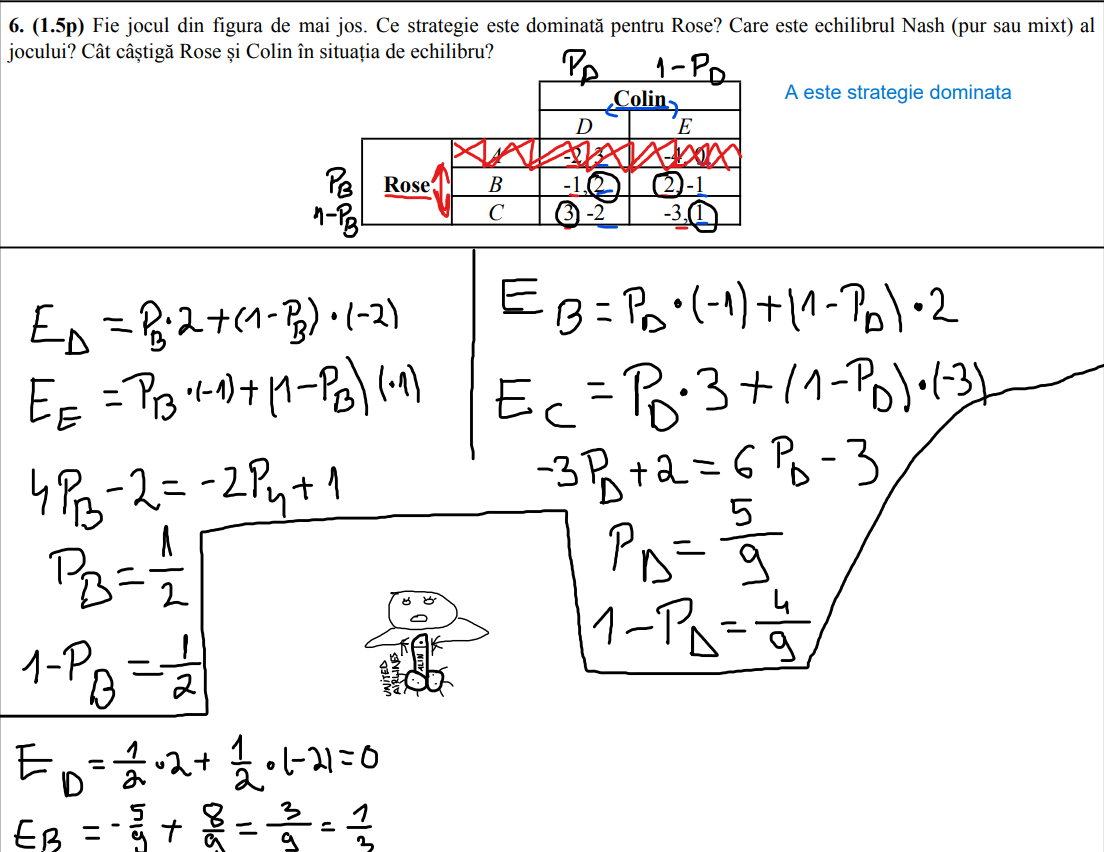 6. (1.5p) Fie jocul din figura de mai jos. Ce strategie este dominată pentru Rose? Care este echilibrul Nash (pur sau mixt) al
jocului? Cât câștigă Rose și Colin în situația de echilibru?
P_D 1-P_D
A este strategie dominata
Colin
D E
-2, 3
P_B Rose B -1, 2 2, -1
1-P_B C 3, -2 -3, 1
E_D = P_B · 2 + (1-P_B) · (-2)
E_E = P_B · (-1) + (1-P_B) (·1)
4P_B - 2 = -2P_4 + 1
P_B = 1/2
1-P_B = 1/2
E_B = P_D · (-1) + (1-P_D) · 2
E_C = P_D · 3 + (1-P_D) · (-3)
-3P_D + 2 = 6P_D - 3
P_D = 5/9
1-P_D = 4/9
UNITED
AIRLINES
E_D = 1/2 · 2 + 1/2 · (-2) = 0
E_B = -5/9 + 8/9 = 3/9 = 1/3